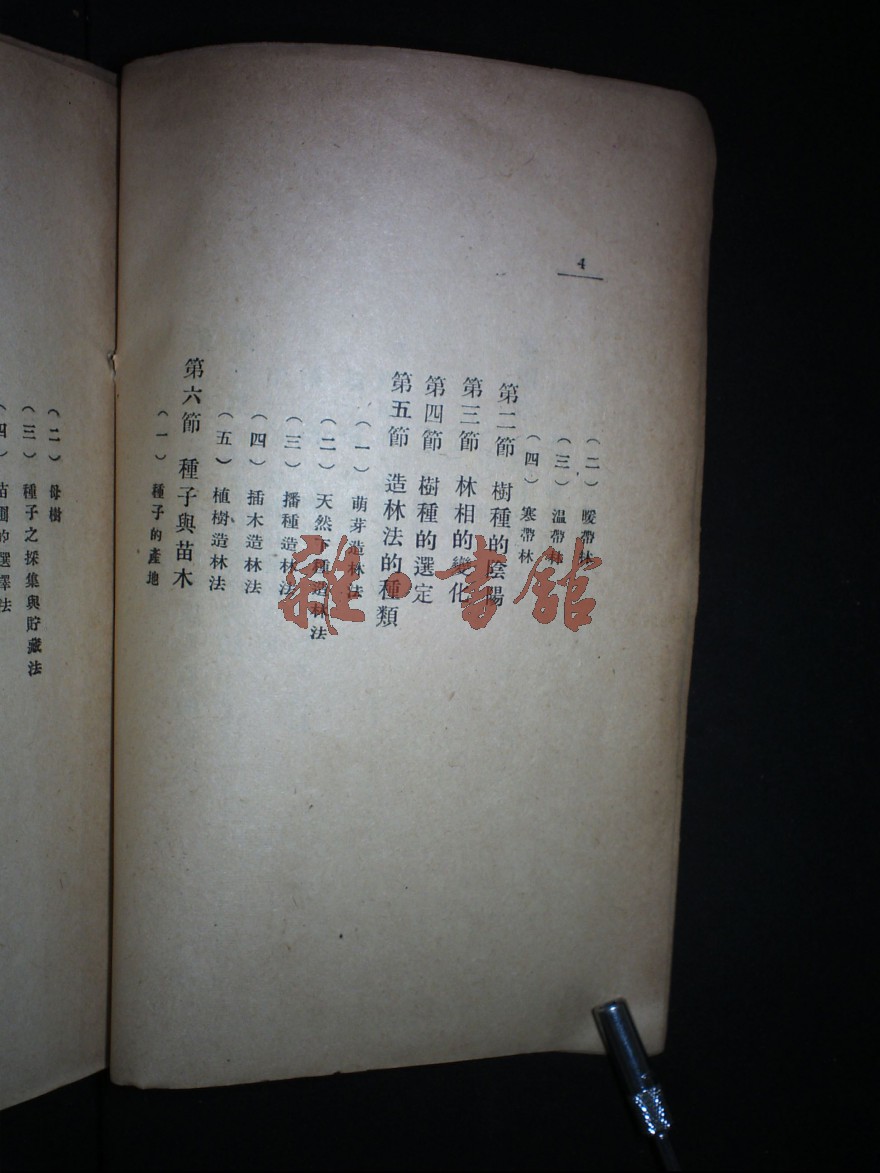 4
（二） 暖帶林
（三） 温帶林
（四） 寒帶林
第二節 樹種的陰陽
第三節 林相的變化
第四節 樹種的選定
第五節 造林法的種類
（一） 萌芽造林法
（二） 天然下種造林法
（三） 播種造林法
（四） 插木造林法
（五） 植樹造林法
第六節 種子與苗木
（一） 種子的產地
（二） 母樹
（三） 種子之採集與貯藏法
（四） 苗圃的選擇法
雜·書館